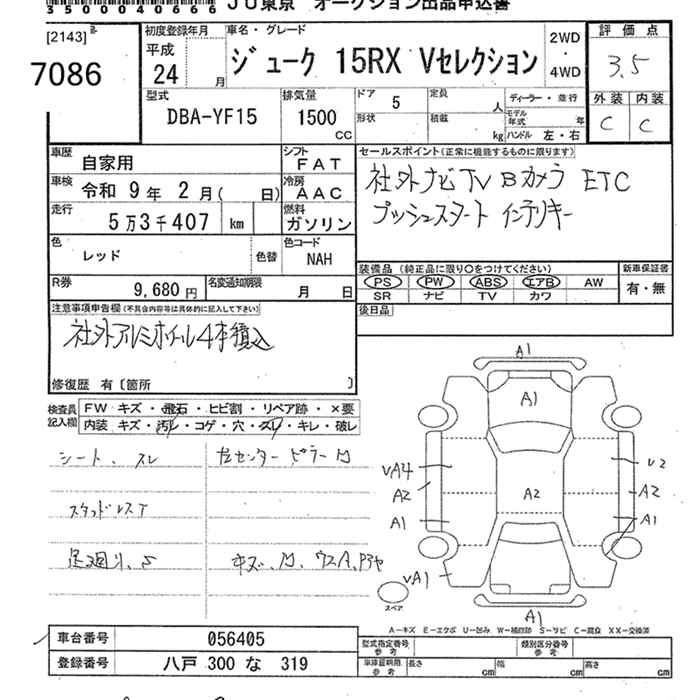 35000400666 JU東京 オークション出品申込書
[2143]
7086
初度登録年月
平成
24 月
車名・グレード
ジューク 15RX Vセレクション
2WD
・
4WD
評価点
3.5
外装 内装
C C
型式
DBA-YF15
排気量
1500
CC
ドア 5
形状
定員 人
積載 kg
ディーラー・並行
モデル年式 年
ハンドル 左・右
車歴 自家用
シフト FAT
車検 令和 9年 2月( 日)
冷房 AAC
走行 5万3千407 km
燃料 ガソリン
色 レッド 色替
色コード NAH
R券 9,680円
名変通知期限 月 日
セールスポイント(正常に機能するものに限ります)
社外ナビTV Bカメラ ETC
プッシュスタート インテリキー
装備品(純正品に限り○をつけてください)
PS PW ABS エアB AW
SR ナビ TV カワ
新車保証書
有・無
後日品
注意事項申告欄(不具合内容等は具体的に記入して下さい)
社外アルミホイール4本積込
修復歴 有〔箇所 〕
検査員記入欄
FW キズ・飛石・ヒビ割・リペア跡・×要
内装 キズ・汚レ・コゲ・穴・スレ・キレ・破レ
シート、スレ
左センターピラーM
スタッドレスT
足廻り、S
キズ、M、ウスA、
A1
A1
VA4
A2
A1
VA1
A2
V2
A2
A1
A1
スペア
A-キズ E-エクボ U-凹み W-補修跡 S-サビ C-腐食 XX-交換済
車台番号 056405
登録番号 八戸 300 な 319
型式指定番号 参考
類別区分番号 参考
車庫証明用 参考
長さ cm 幅 cm 高さ cm